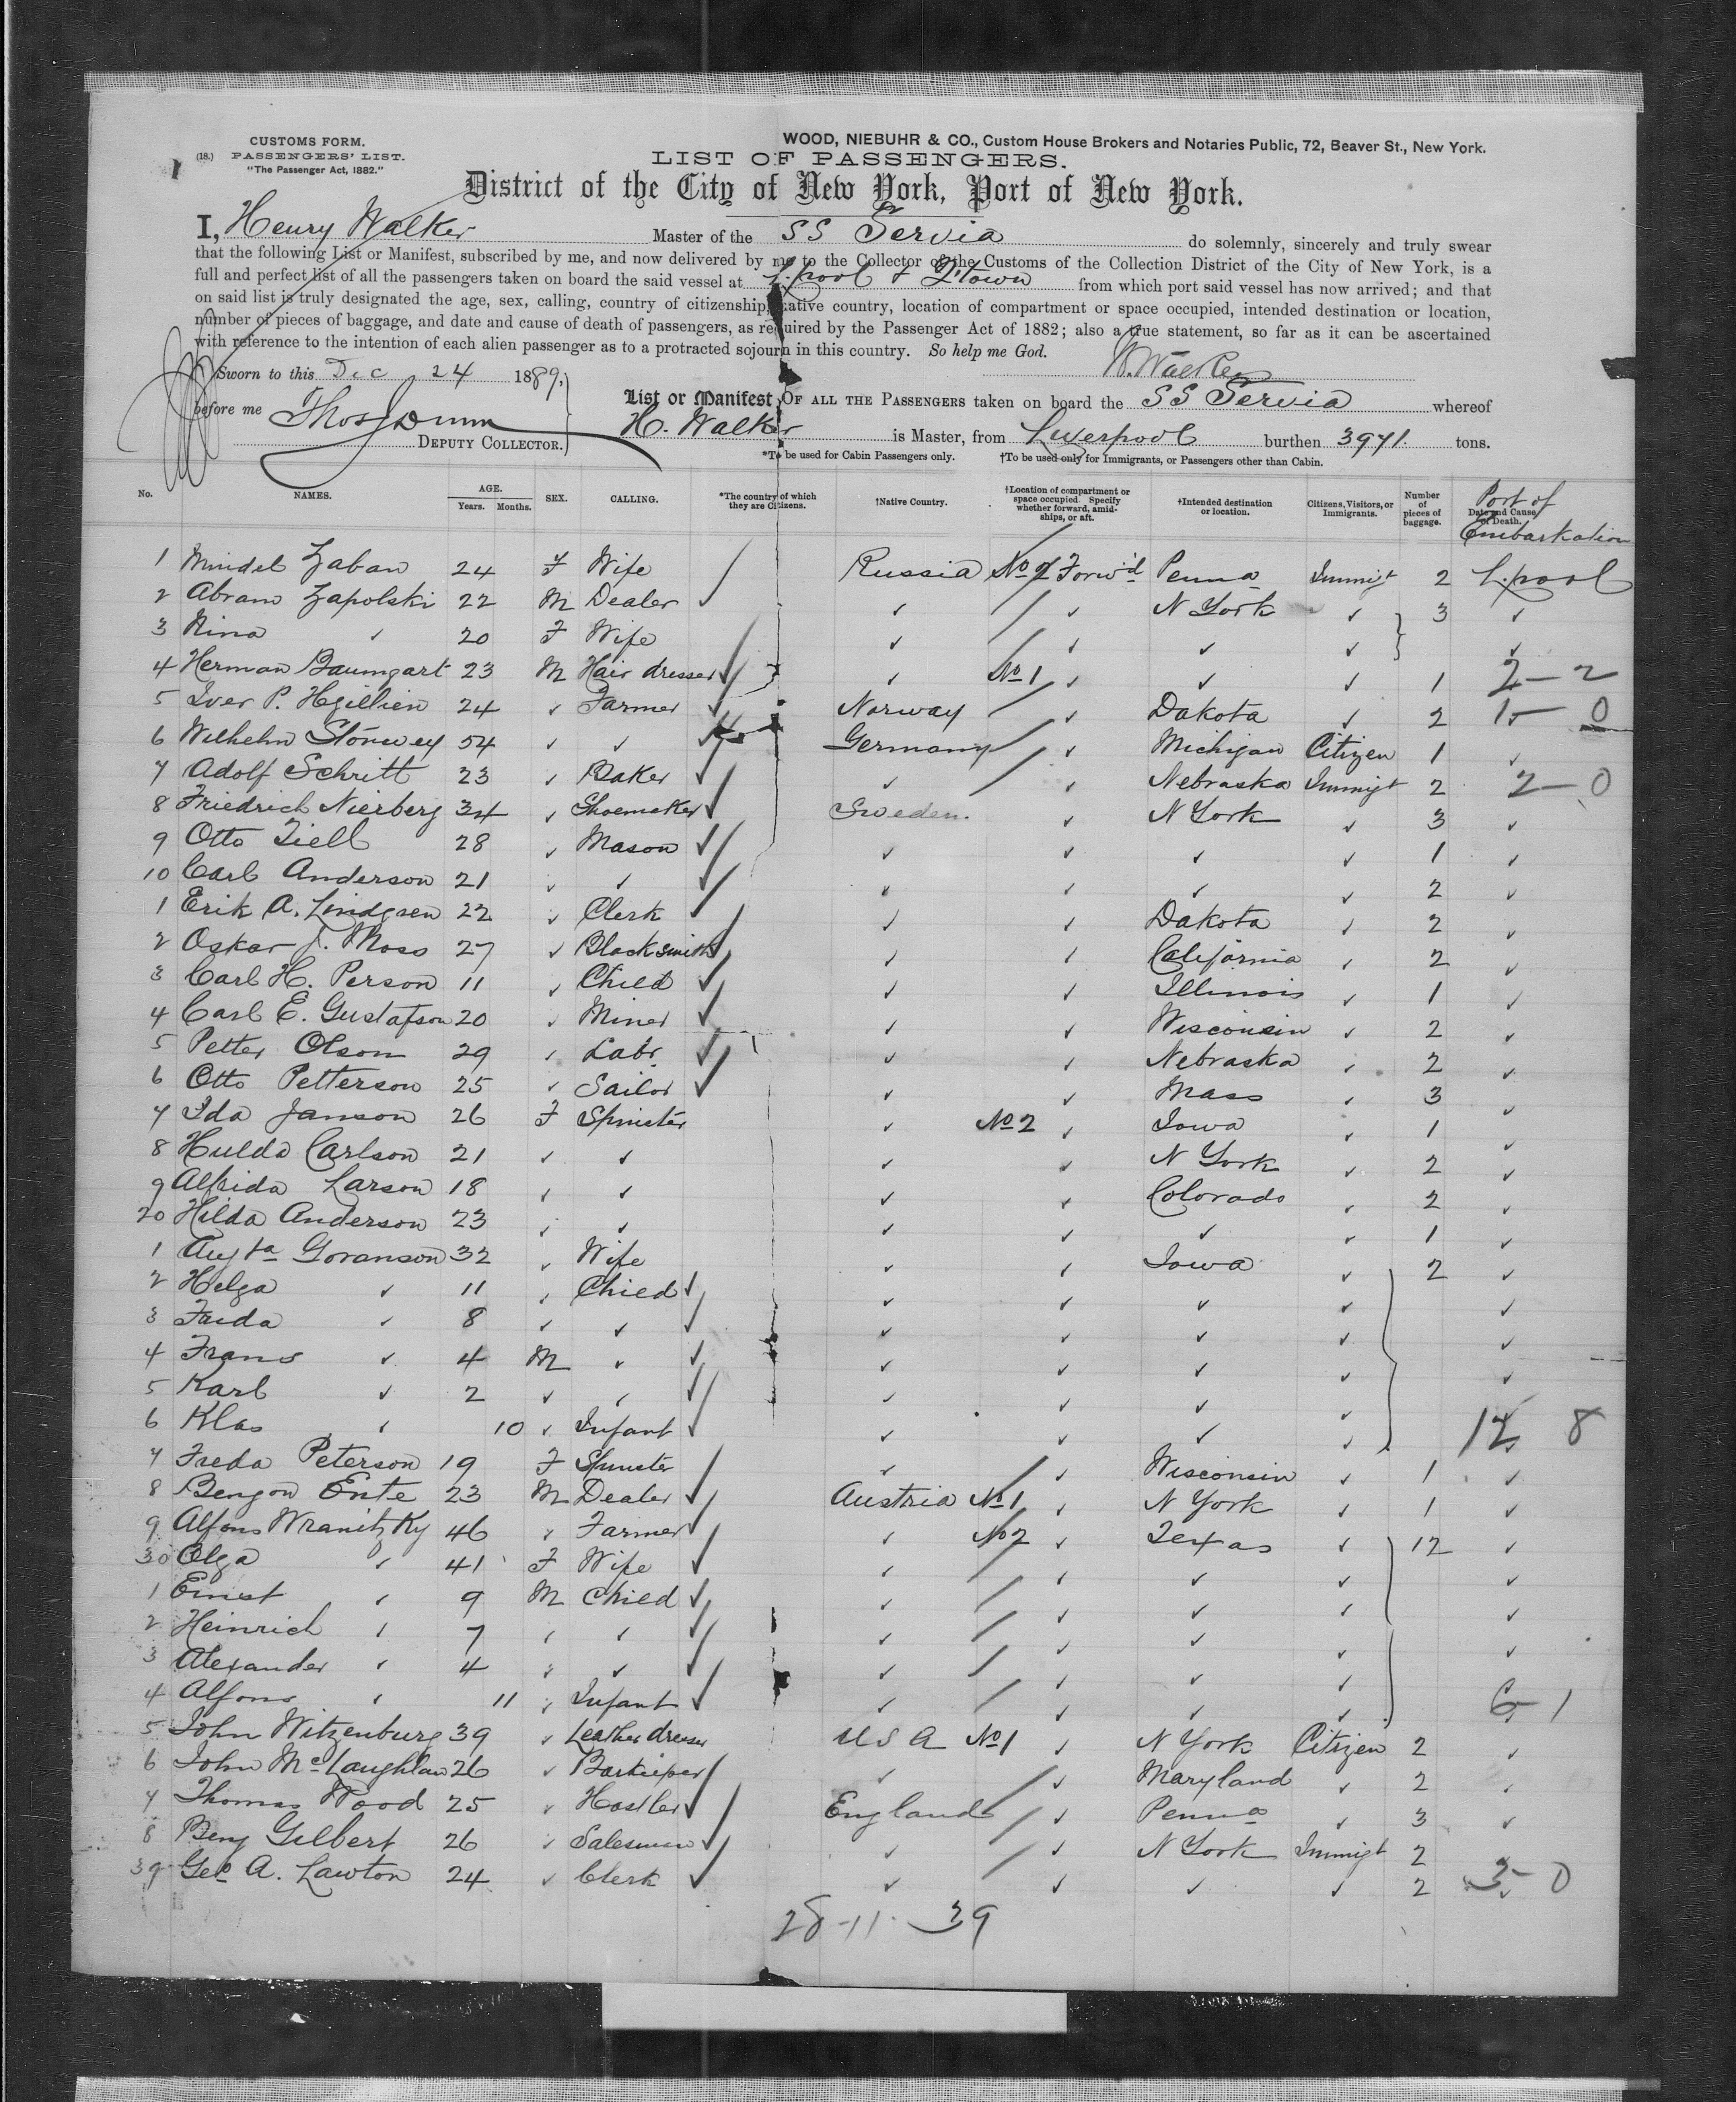 CUSTOMS FORM.
(18.) PASSENGERS' LIST.
"The Passenger Act, 1882."
WOOD, NIEBUHR & CO., Custom House Brokers and Notaries Public, 72, Beaver St., New York.
LIST OF PASSENGERS.
District of the City of New York, Port of New York.
I, Henry Walker Master of the SS Servia do solemnly, sincerely and truly swear
that the following List or Manifest, subscribed by me, and now delivered by me to the Collector of the Customs of the Collection District of the City of New York, is a
full and perfect list of all the passengers taken on board the said vessel at L.pool & Q.town from which port said vessel has now arrived; and that
on said list is truly designated the age, sex, calling, country of citizenship, native country, location of compartment or space occupied, intended destination or location,
number of pieces of baggage, and date and cause of death of passengers, as required by the Passenger Act of 1882; also a true statement, so far as it can be ascertained
with reference to the intention of each alien passenger as to a protracted sojourn in this country. So help me God.
H. Walker
Sworn to this Dec 24 1889,
before me Thos J Dunn
DEPUTY COLLECTOR.
List or Manifest OF ALL THE PASSENGERS taken on board the SS Servia whereof
H. Walker is Master, from Liverpool burthen 3971. tons.
*To be used for Cabin Passengers only. †To be used only for Immigrants, or Passengers other than Cabin.
No. NAMES. AGE. Years. Months. SEX. CALLING. *The country of which they are Citizens. †Native Country. †Location of compartment or space occupied. Specify whether forward, amidships, or aft. †Intended destination or location. Citizens, Visitors, or Immigrants. Number of pieces of baggage. Date and Cause of Death. Port of Embarkation
1 Mindel Zaban 24 F Wife Russia No 2 Forw'd Penna Immigt 2 L.pool
2 Abram Zapolski 22 M Dealer ✓ ✓ N York ✓ 3 ✓
3 Nina ✓ 20 F Wife ✓ ✓ ✓ ✓ ✓
4 Herman Baumgart 23 M Hair dresser ✓ No 1 ✓ ✓ ✓ 1 2 - 2
5 Iver P. 24 ✓ Farmer Norway ✓ Dakota ✓ 2 1 - 0
6 Wilhelm 54 ✓ ✓ Germany ✓ Michigan Citizen 1 ✓
7 Adolf Schritt 23 ✓ Baker ✓ ✓ Nebraska Immigt 2 2 - 0
8 Friedrich Nierberg 34 ✓ Shoemaker Sweden. ✓ N York ✓ 3 ✓
9 Otto Tiell 28 ✓ Mason ✓ ✓ ✓ ✓ 1 ✓
10 Carl Anderson 21 ✓ ✓ ✓ ✓ ✓ ✓ 2 ✓
1 Erik A. Lindgren 22 ✓ Clerk ✓ ✓ Dakota ✓ 2 ✓
2 Oskar J. Moss 27 ✓ Blacksmith ✓ ✓ California ✓ 2 ✓
3 Carl H. Person 11 ✓ Child ✓ ✓ Illinois ✓ 1 ✓
4 Carl E. Gustafson 20 ✓ Miner ✓ ✓ Wisconsin ✓ 2 ✓
5 Petter Olson 29 ✓ Labr ✓ ✓ Nebraska ✓ 2 ✓
6 Otto Petterson 25 ✓ Sailor ✓ ✓ Mass ✓ 3 ✓
7 Ida Janson 26 F Spinster ✓ No 2 ✓ Iowa ✓ 1 ✓
8 Hulda Carlson 21 ✓ ✓ ✓ ✓ N York ✓ 2 ✓
9 Alfrida Larson 18 ✓ ✓ ✓ ✓ Colorado ✓ 2 ✓
20 Hilda Anderson 23 ✓ ✓ ✓ ✓ ✓ ✓ 1 ✓
1 Augta Goranson 32 ✓ Wife ✓ ✓ Iowa ✓ 2 ✓
2 Helga ✓ 11 ✓ Child ✓ ✓ ✓ ✓ ✓
3 Frida ✓ 8 ✓ ✓ ✓ ✓ ✓ ✓ ✓
4 Frans ✓ 4 M ✓ ✓ ✓ ✓ ✓ ✓
5 Karl ✓ 2 ✓ ✓ ✓ ✓ ✓ ✓ ✓
6 Klas ✓ 10 ✓ Infant ✓ ✓ ✓ ✓ 12 8
7 Freda Peterson 19 F Spinster ✓ ✓ Wisconsin ✓ 1 ✓
8 Bengon Ente 23 M Dealer Austria No 1 ✓ N York ✓ 1 ✓
9 Alfons Wranitzky 46 ✓ Farmer ✓ No 2 ✓ Texas ✓ 12 ✓
30 Olga ✓ 41 F Wife ✓ ✓ ✓ ✓ ✓
1 Ernest ✓ 9 M Child ✓ ✓ ✓ ✓ ✓
2 Heinrich ✓ 7 ✓ ✓ ✓ ✓ ✓ ✓ ✓
3 Alexander ✓ 4 ✓ ✓ ✓ ✓ ✓ ✓
4 Alfons ✓ 11 ✓ Infant ✓ ✓ ✓ ✓ 6 - 1
5 John Witzenburg 39 ✓ Leather dresser U S A No 1 ✓ N York Citizen 2 ✓
6 John McLaughlan 26 ✓ Barkeeper ✓ ✓ Maryland ✓ 2 ✓
7 Thomas Wood 25 ✓ Hostler England ✓ Penna ✓ 3 ✓
8 Benj Gilbert 26 ✓ Salesman ✓ ✓ N York Immigt 2
39 Geo A. Lawton 24 ✓ Clerk ✓ ✓ ✓ ✓ 2 3 - 0
28-11. 39